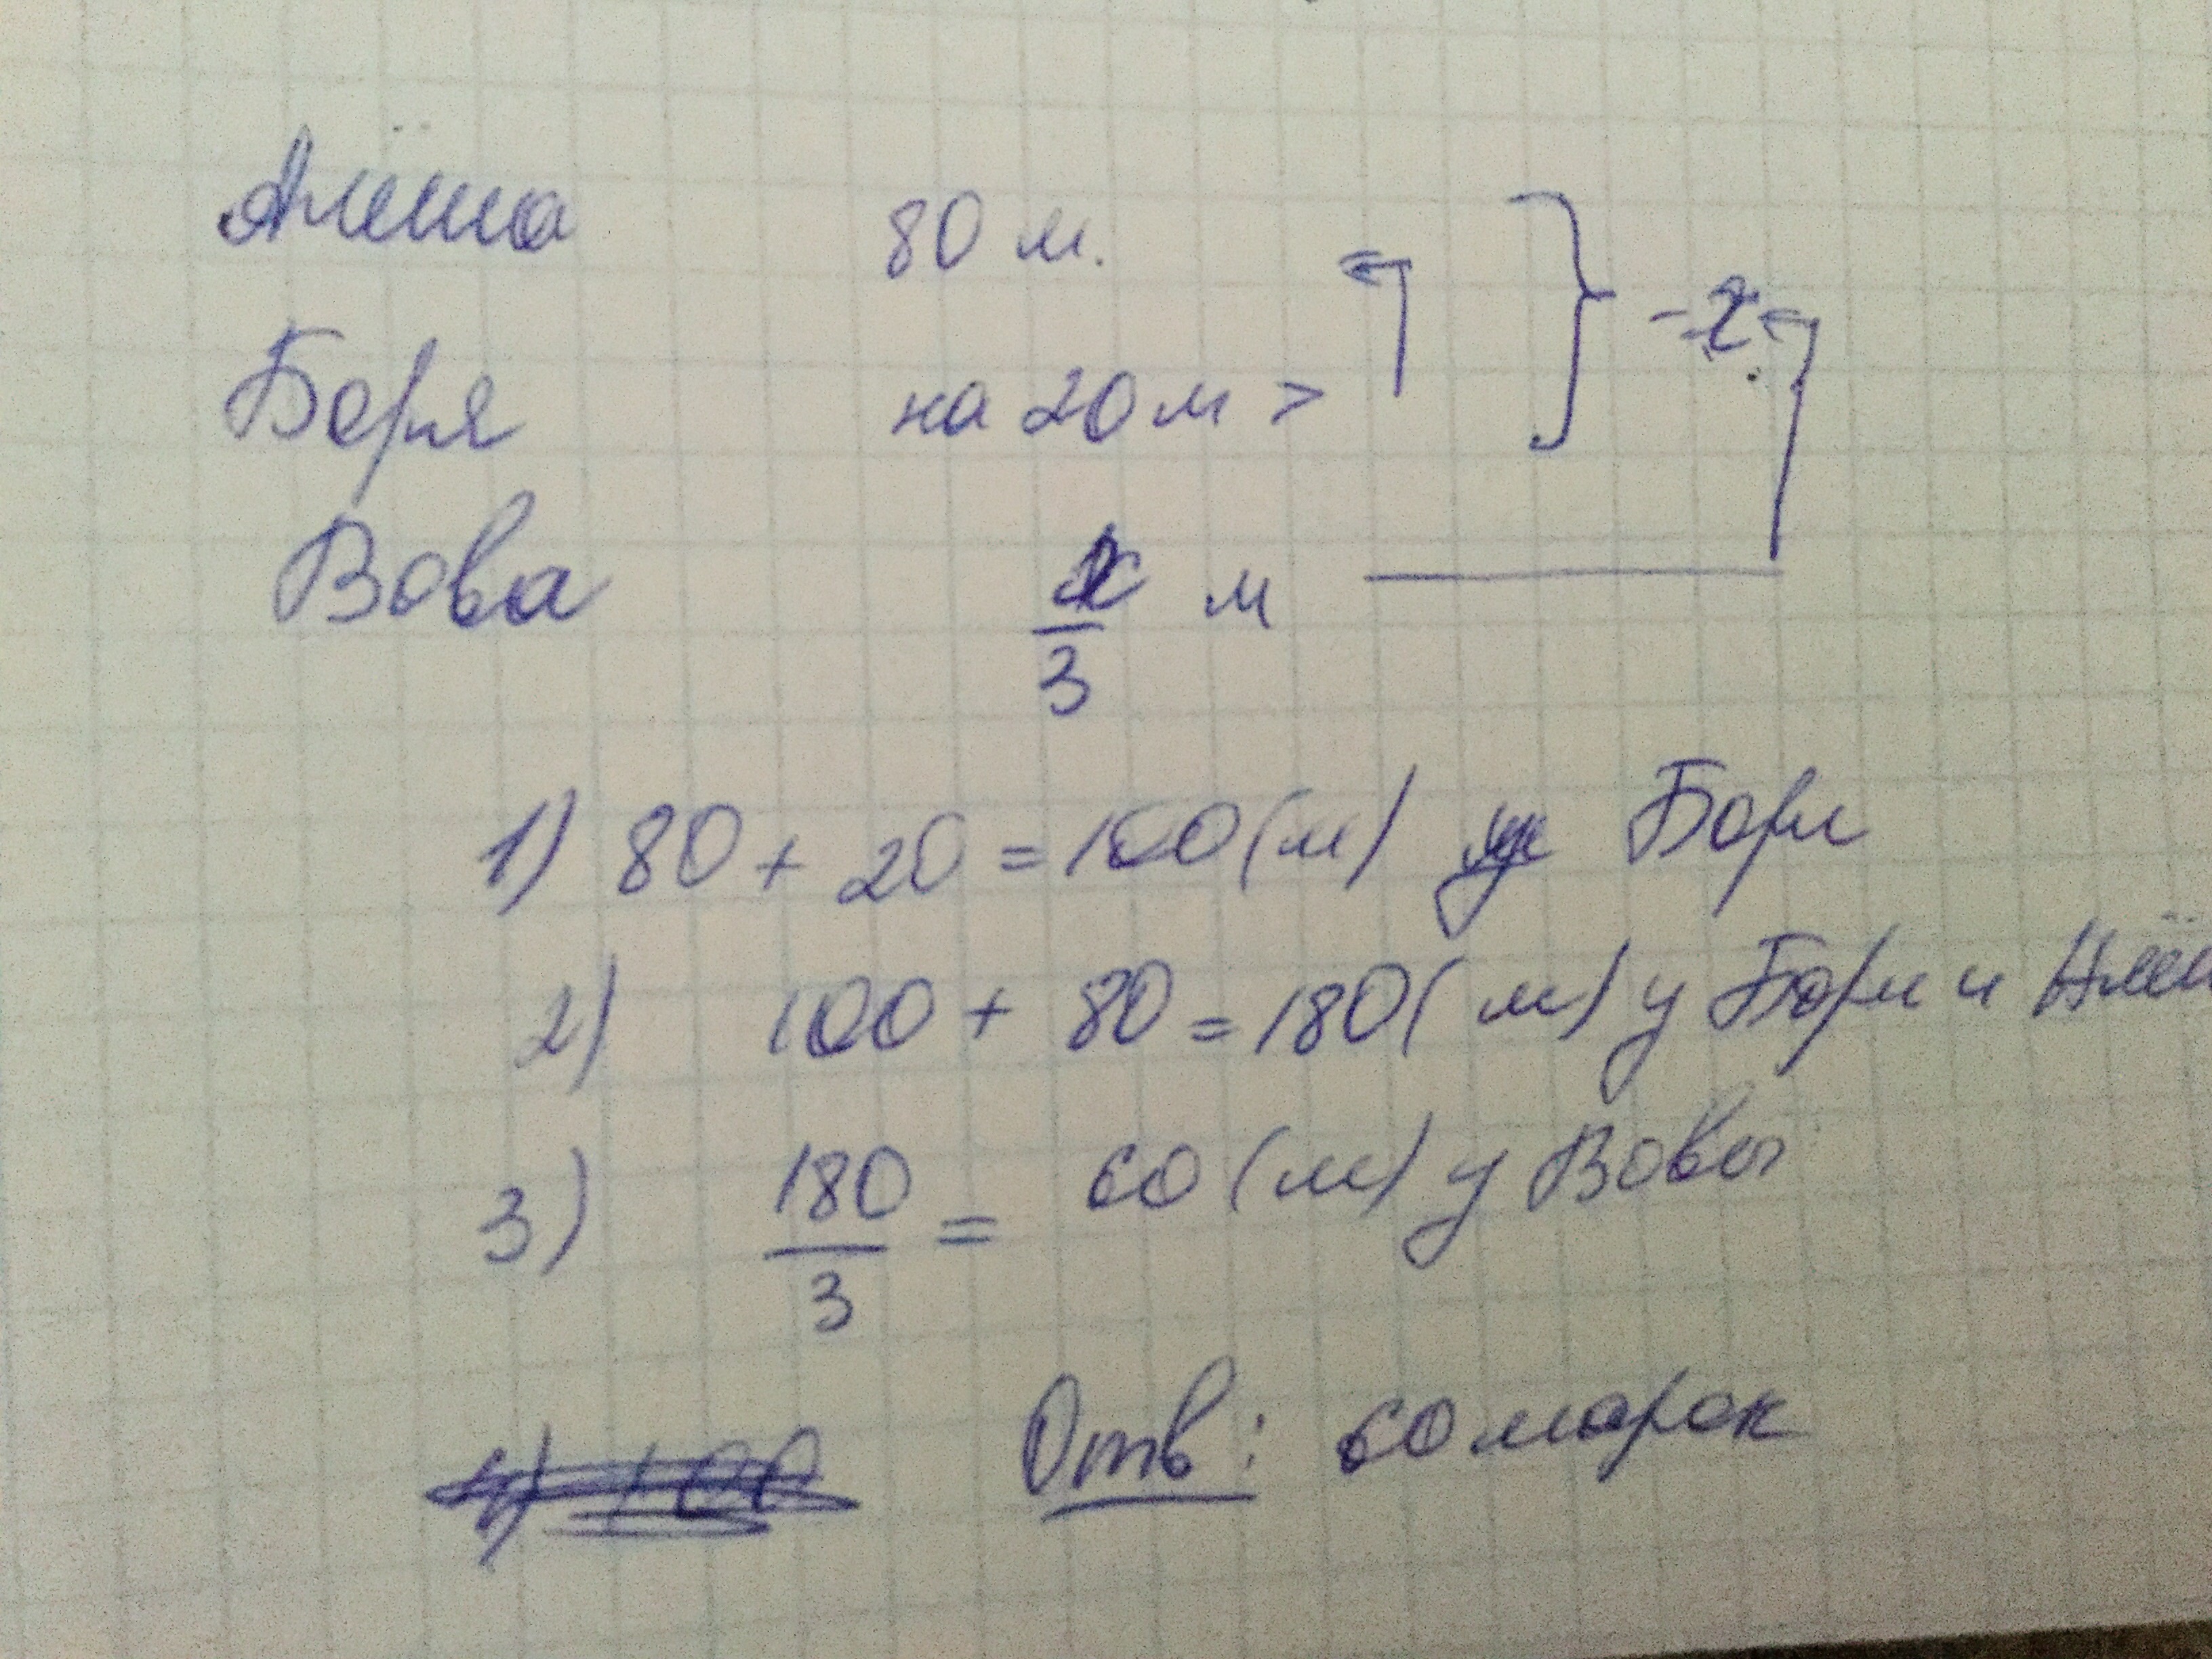 Алёша 80 м.
Боря на 20 м > } - x
Вова x/3 м
1) 80 + 20 = 100 (м) у Бори
2) 100 + 80 = 180 (м) у Бори и Алёш
3) 180/3 = 60 (м) у Вовы
4) 100
Отв: 60 марок